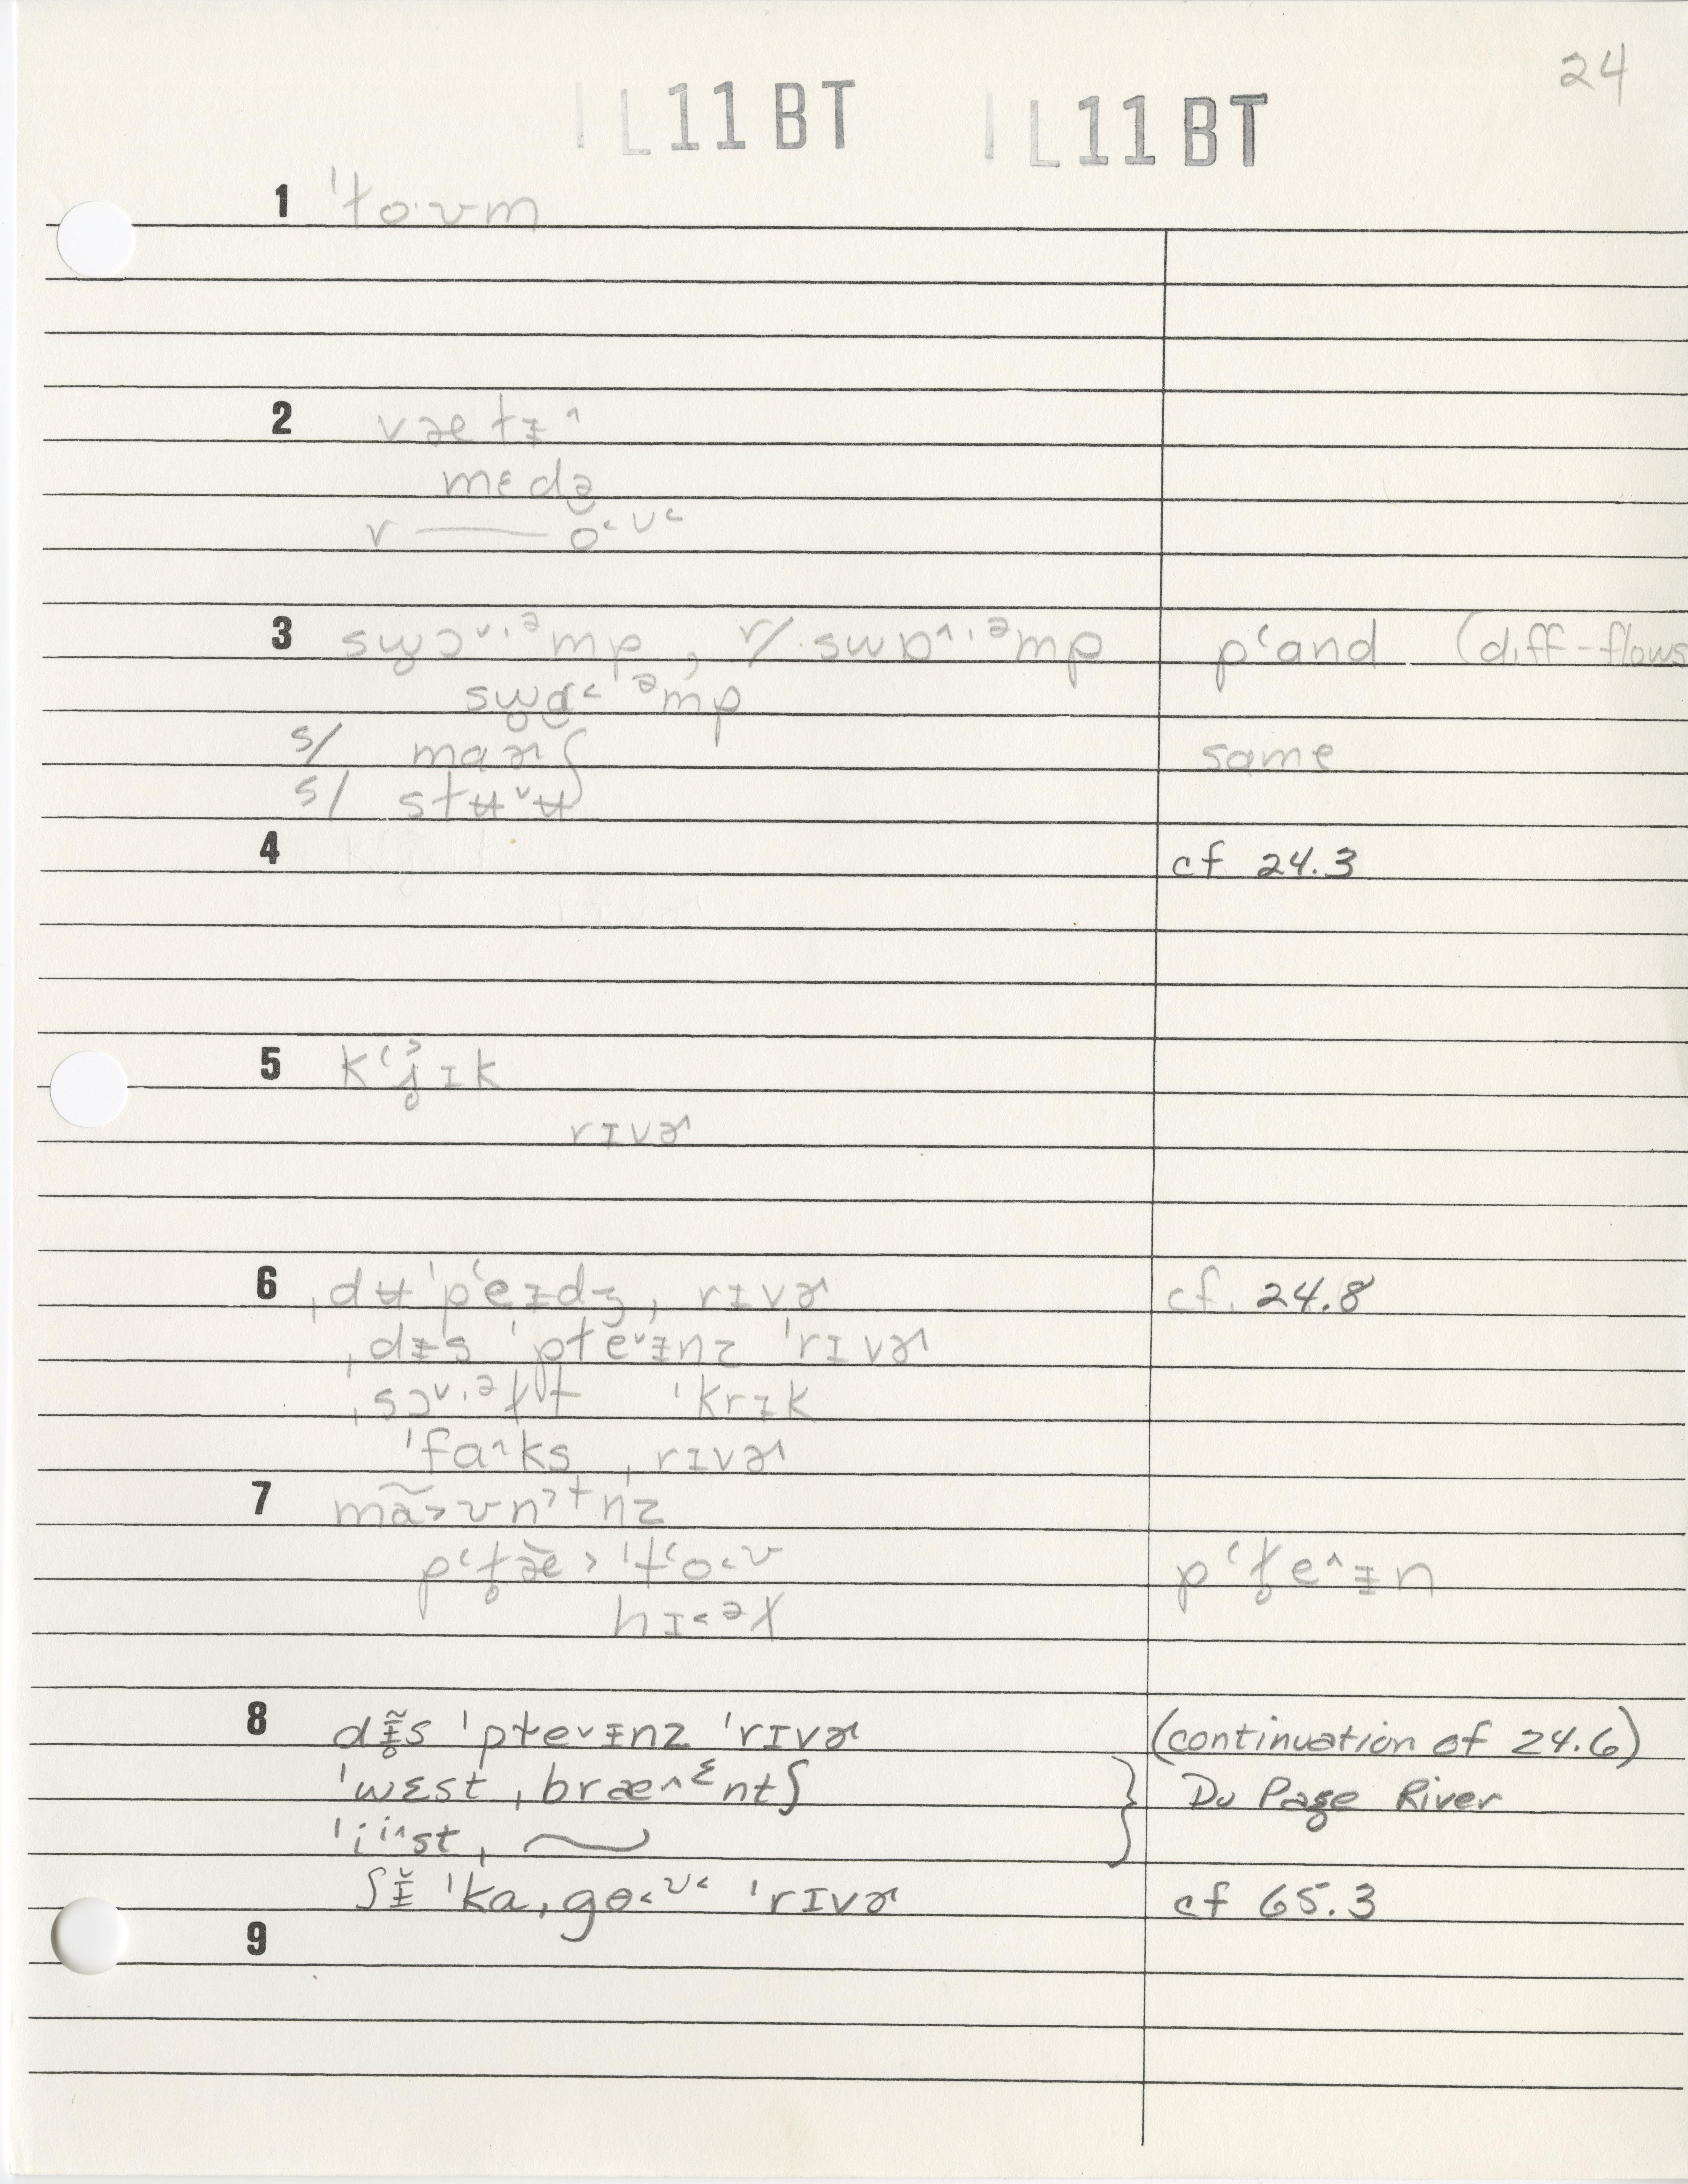 24
IL11BT IL11BT
1 ˈɫo·ʊm
2 væɫɨ^
mɛdə̯
r —— o˂ʊ˂
3 sw̥ɔ˅·ᵊmp, r/·swɒ^·ᵊmp pʻand (diff-flows
sw̥ɑ˂ ᵊmp
s/ maɚʃ same
s/ stʉ˅ʉ
4 cf 24.3
5 kʻj̥˃ɪk
rɪvɚ
6 ˌdʉˈpʻeɨdʒˌrɪvɚ cf. 24.8
ˌdɨsˈpɫe˅ɨnz ˈrɪvɚ
ˌsɔ˅·ᵊɫt ˈkrɪk
ˈfa^ksˌrɪvɚ
7 mã˃ʊnʔɨnz
pʻɫ̥æ̆˃ˈtʻo˂ʊ pʻɫ̥e^ɨn
hɪ˂ᵊɫ
8 dɨ̥̃s ˈpɫe˅ɨnz ˈrɪvɚ (continuation of 24.6)
ˈwɛstˌbræ^ᵋntʃ } Du Page River
ˈiⁱ^stˌ ~
ʃɨ̆ ˈkaˌgɵ˂ᶷ˂ ˈrɪvɚ cf 65.3
9